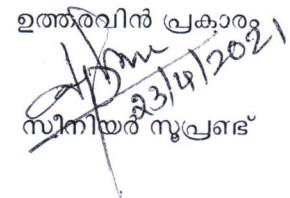 ഉത്തരവിൻ പ്രകാരം
23/4/2021
സീനിയർ സൂപ്രണ്ട്